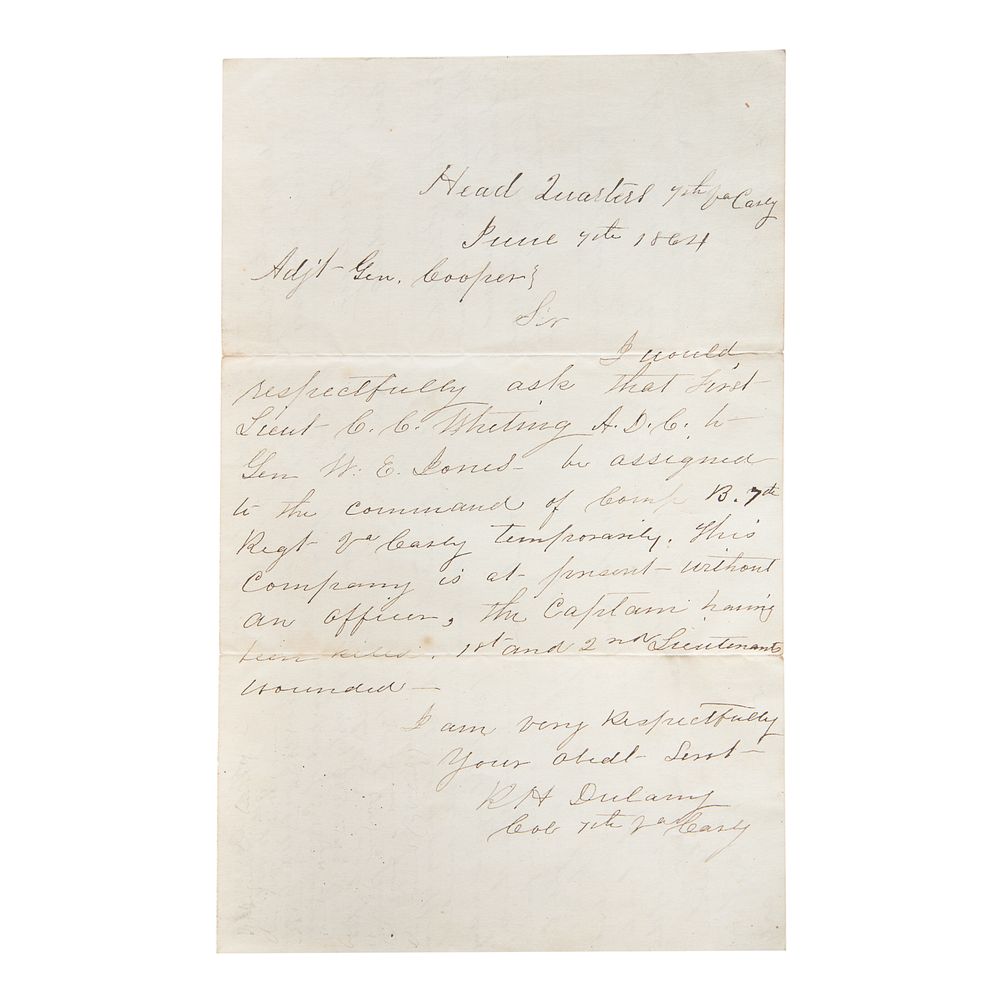 Head Quarters 7th Va Cavly
June 7th 1864
Adj't Gen. Cooper}
Sir
I would
respectfully ask that First
Lieut C. C. Whiting A.D.C. to
Gen W. E. Jones be assigned
to the command of Comp B. 7th
Regt Va Cavly temporarily. This
Company is at present without
an officer, the Captain having
been killed. 1st and 2nd Lieutenants
wounded —
I am very Respectfully
Your Obedt Servt
R H Dulany
Col 7th Va Cavly